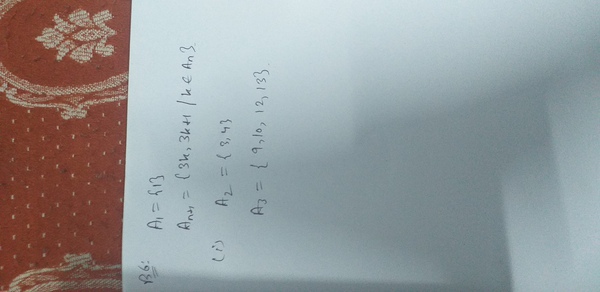 B6:
A₁ = {1}
Aₙ₊₁ = {3k, 3k+1 / k ∈ Aₙ}
(i) A₂ = {3,4}
A₃ = { 9,10, 12, 13}